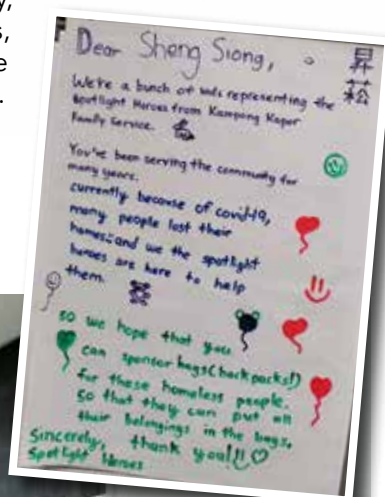 Dear Sheng Siong,
昇
菘
We're a bunch of kids representing the
Spotlight Heroes from Kampong Kapor
Family Service.
You've been serving the community for
many years.
currently because of covid-19,
many people lost their
homes; and we the spotlight
heroes are here to help
them.
so we hope that you
can sponsor bags (backpacks!)
for these homeless people.
So that they can put all
their belongings in the bags.
Sincerely, thank you!!!
Spotlight Heroes